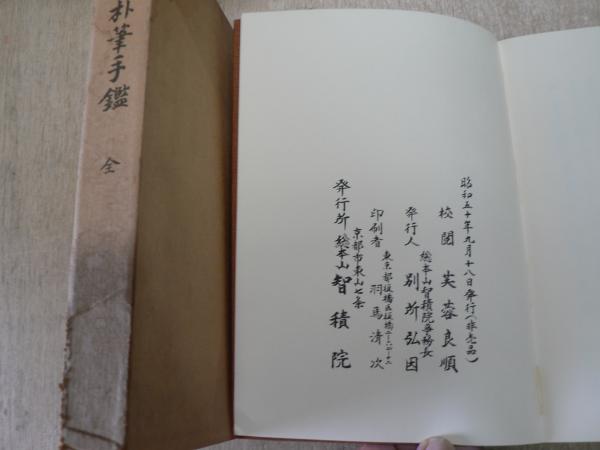 朴筆手鑑 全
昭和五十年九月十八日発行(非売品)
校閲 芙蓉良順
総本山智積院事務長
発行人 別所弘因
東京都板橋区板橋
印刷者 羽馬清次
京都市東山七条
発行所 総本山 智積院